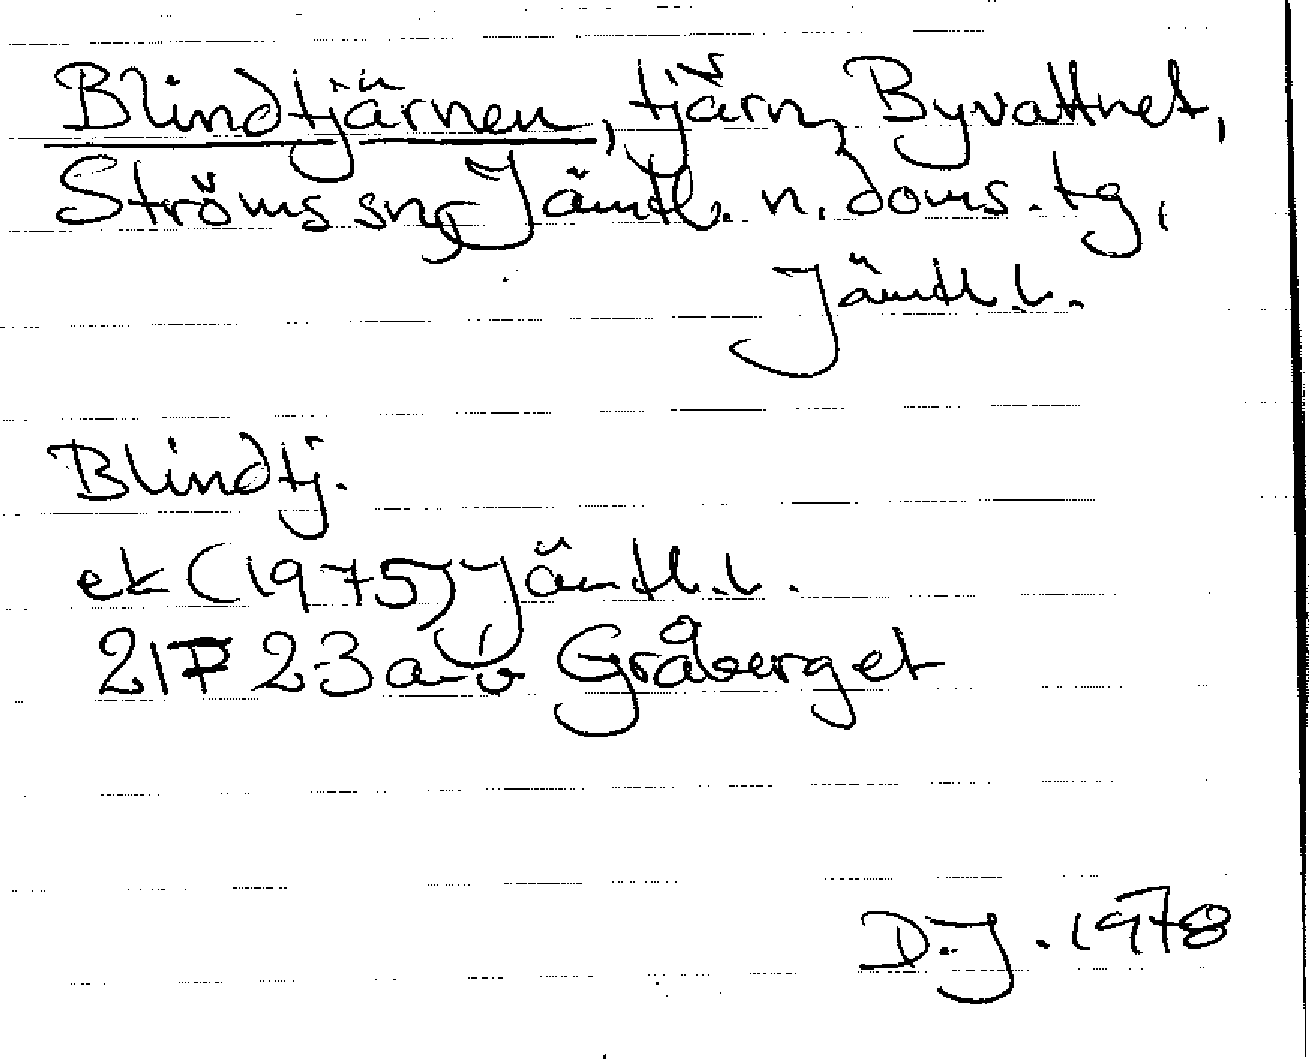 Blindtjärnen, tjärn, Byvattnet,
Ströms sn, Jämtl. n. doms. tg,
Jämtl. l.
Blindtj.
ek (1975) Jämtl. l.
21F 23 a-b Gråberget
D.J. 1978